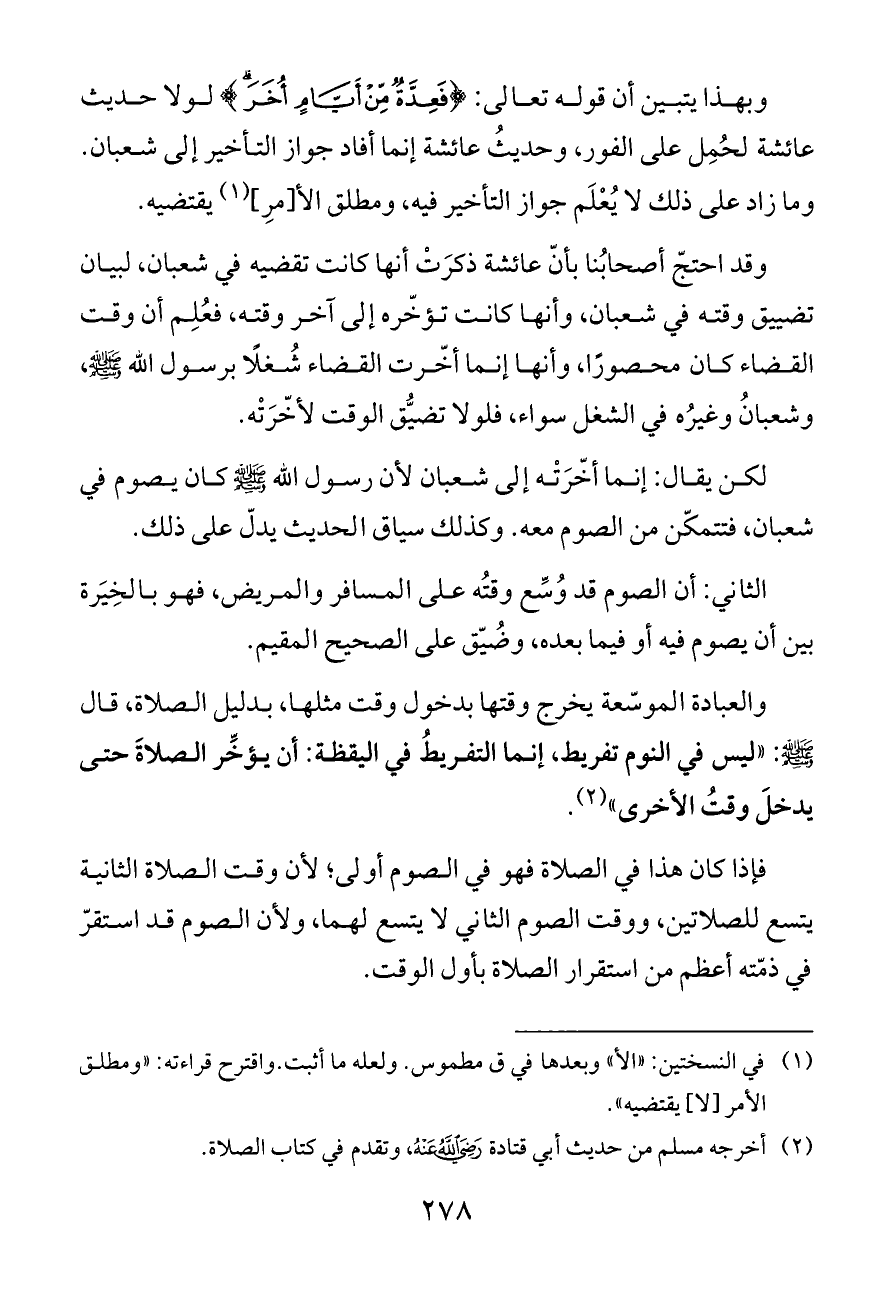 وبهذا يتبين أن قوله تعالى: ﴿فَعِدَّةٌ مِّنْ أَيَّامٍ أُخَرَ ۗ﴾ لولا حديث
عائشة لحُمِل على الفور، وحديثُ عائشة إنما أفاد جواز التأخير إلى شعبان.
وما زاد على ذلك لا يُعْلَم جواز التأخير فيه، ومطلق الأ[مرِ](١) يقتضيه.
وقد احتجّ أصحابُنا بأنّ عائشة ذكرَتْ أنها كانت تقضيه في شعبان، لبيان
تضييق وقته في شعبان، وأنها كانت تؤخّره إلى آخر وقته، فعُلِم أن وقت
القضاء كان محصورًا، وأنها إنما أخّرت القضاء شُغلًا برسول الله ﷺ،
وشعبانُ وغيرُه في الشغل سواء، فلولا تضيُّق الوقت لأخّرَتْه.
لكن يقال: إنما أخّرَتْه إلى شعبان لأن رسول الله ﷺ كان يصوم في
شعبان، فتتمكّن من الصوم معه. وكذلك سياق الحديث يدلّ على ذلك.
الثاني: أن الصوم قد وُسِّع وقتُه على المسافر والمريض، فهو بالخِيَرة
بين أن يصوم فيه أو فيما بعده، وضُيّق على الصحيح المقيم.
والعبادة الموسّعة يخرج وقتها بدخول وقت مثلها، بدليل الصلاة، قال
ﷺ: «ليس في النوم تفريط، إنما التفريطُ في اليقظة: أن يؤخِّر الصلاةَ حتى
يدخلَ وقتُ الأخرى»(٢).
فإذا كان هذا في الصلاة فهو في الصوم أولى؛ لأن وقت الصلاة الثانية
يتسع للصلاتين، ووقت الصوم الثاني لا يتسع لهما، ولأن الصوم قد استقرّ
في ذمّته أعظم من استقرار الصلاة بأول الوقت.
(١) في النسختين: «الأ» وبعدها في ق مطموس. ولعله ما أثبت.واقترح قراءته: «ومطلق
الأمر [لا] يقتضيه».
(٢) أخرجه مسلم من حديث أبي قتادة رَضِيَ اللَّهُ عَنْهُ، وتقدم في كتاب الصلاة.
٢٧٨